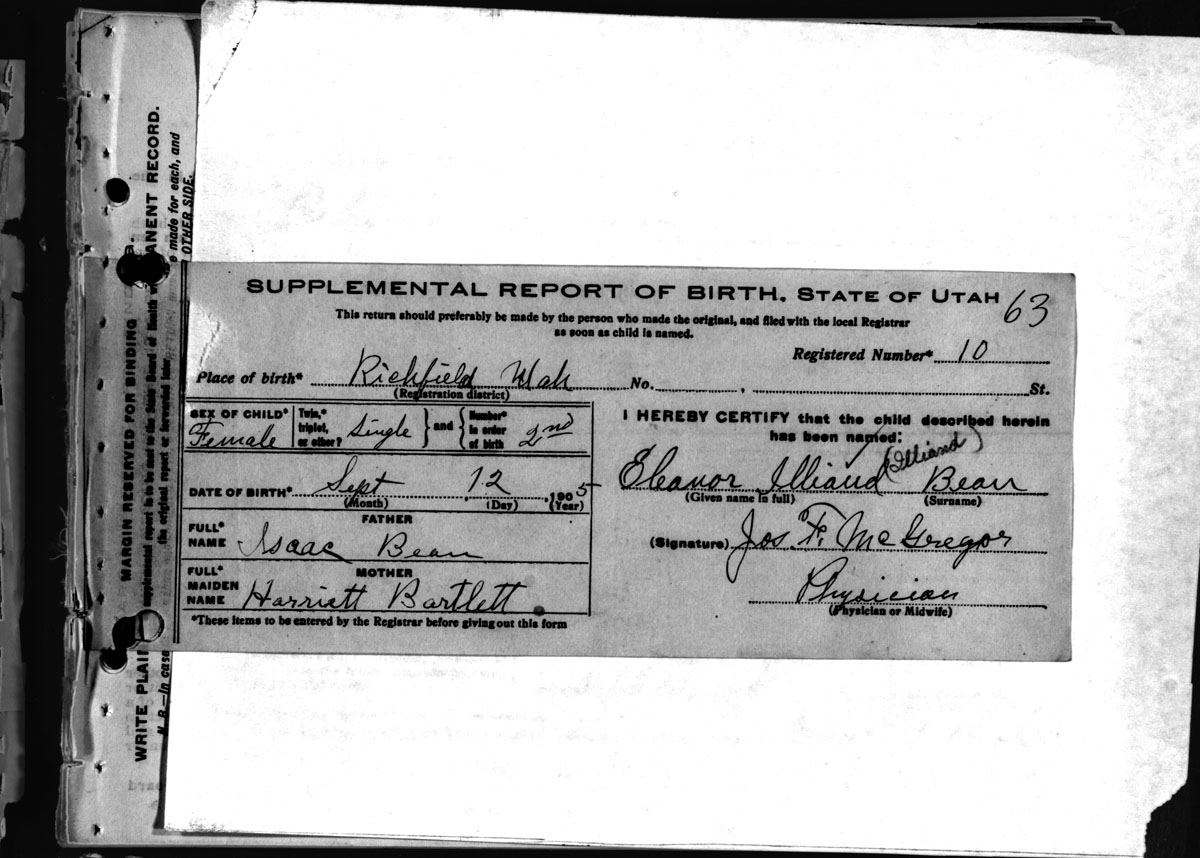 SUPPLEMENTAL REPORT OF BIRTH. STATE OF UTAH 63
This return should preferably be made by the person who made the original, and filed with the local Registrar
as soon as child is named.
Registered Number* 10
Place of birth* Richfield Utah No. , St.
(Registration district)
SEX OF CHILD* Female Twin,* triplet, or other? Single } and { Number* in order of birth 2nd
DATE OF BIRTH* Sept 12, 1905
(Month) (Day) (Year)
FATHER
FULL* NAME Isaac Bean
MOTHER
FULL* MAIDEN NAME Harriett Bartlett
*These items to be entered by the Registrar before giving out this form
I HEREBY CERTIFY that the child described herein
has been named:
(Illiand)
Eleanor Illiand Bean
(Given name in full) (Surname)
(Signature) Jos. F. McGregor
Physician
(Physician or Midwife)
MARGIN RESERVED FOR BINDING
supplemental report to be sent to the State Board of Health
the original report or forwarded later.
WRITE PLAI
ANENT RECORD.
N. B.—In case
e made for each, and
OTHER SIDE.